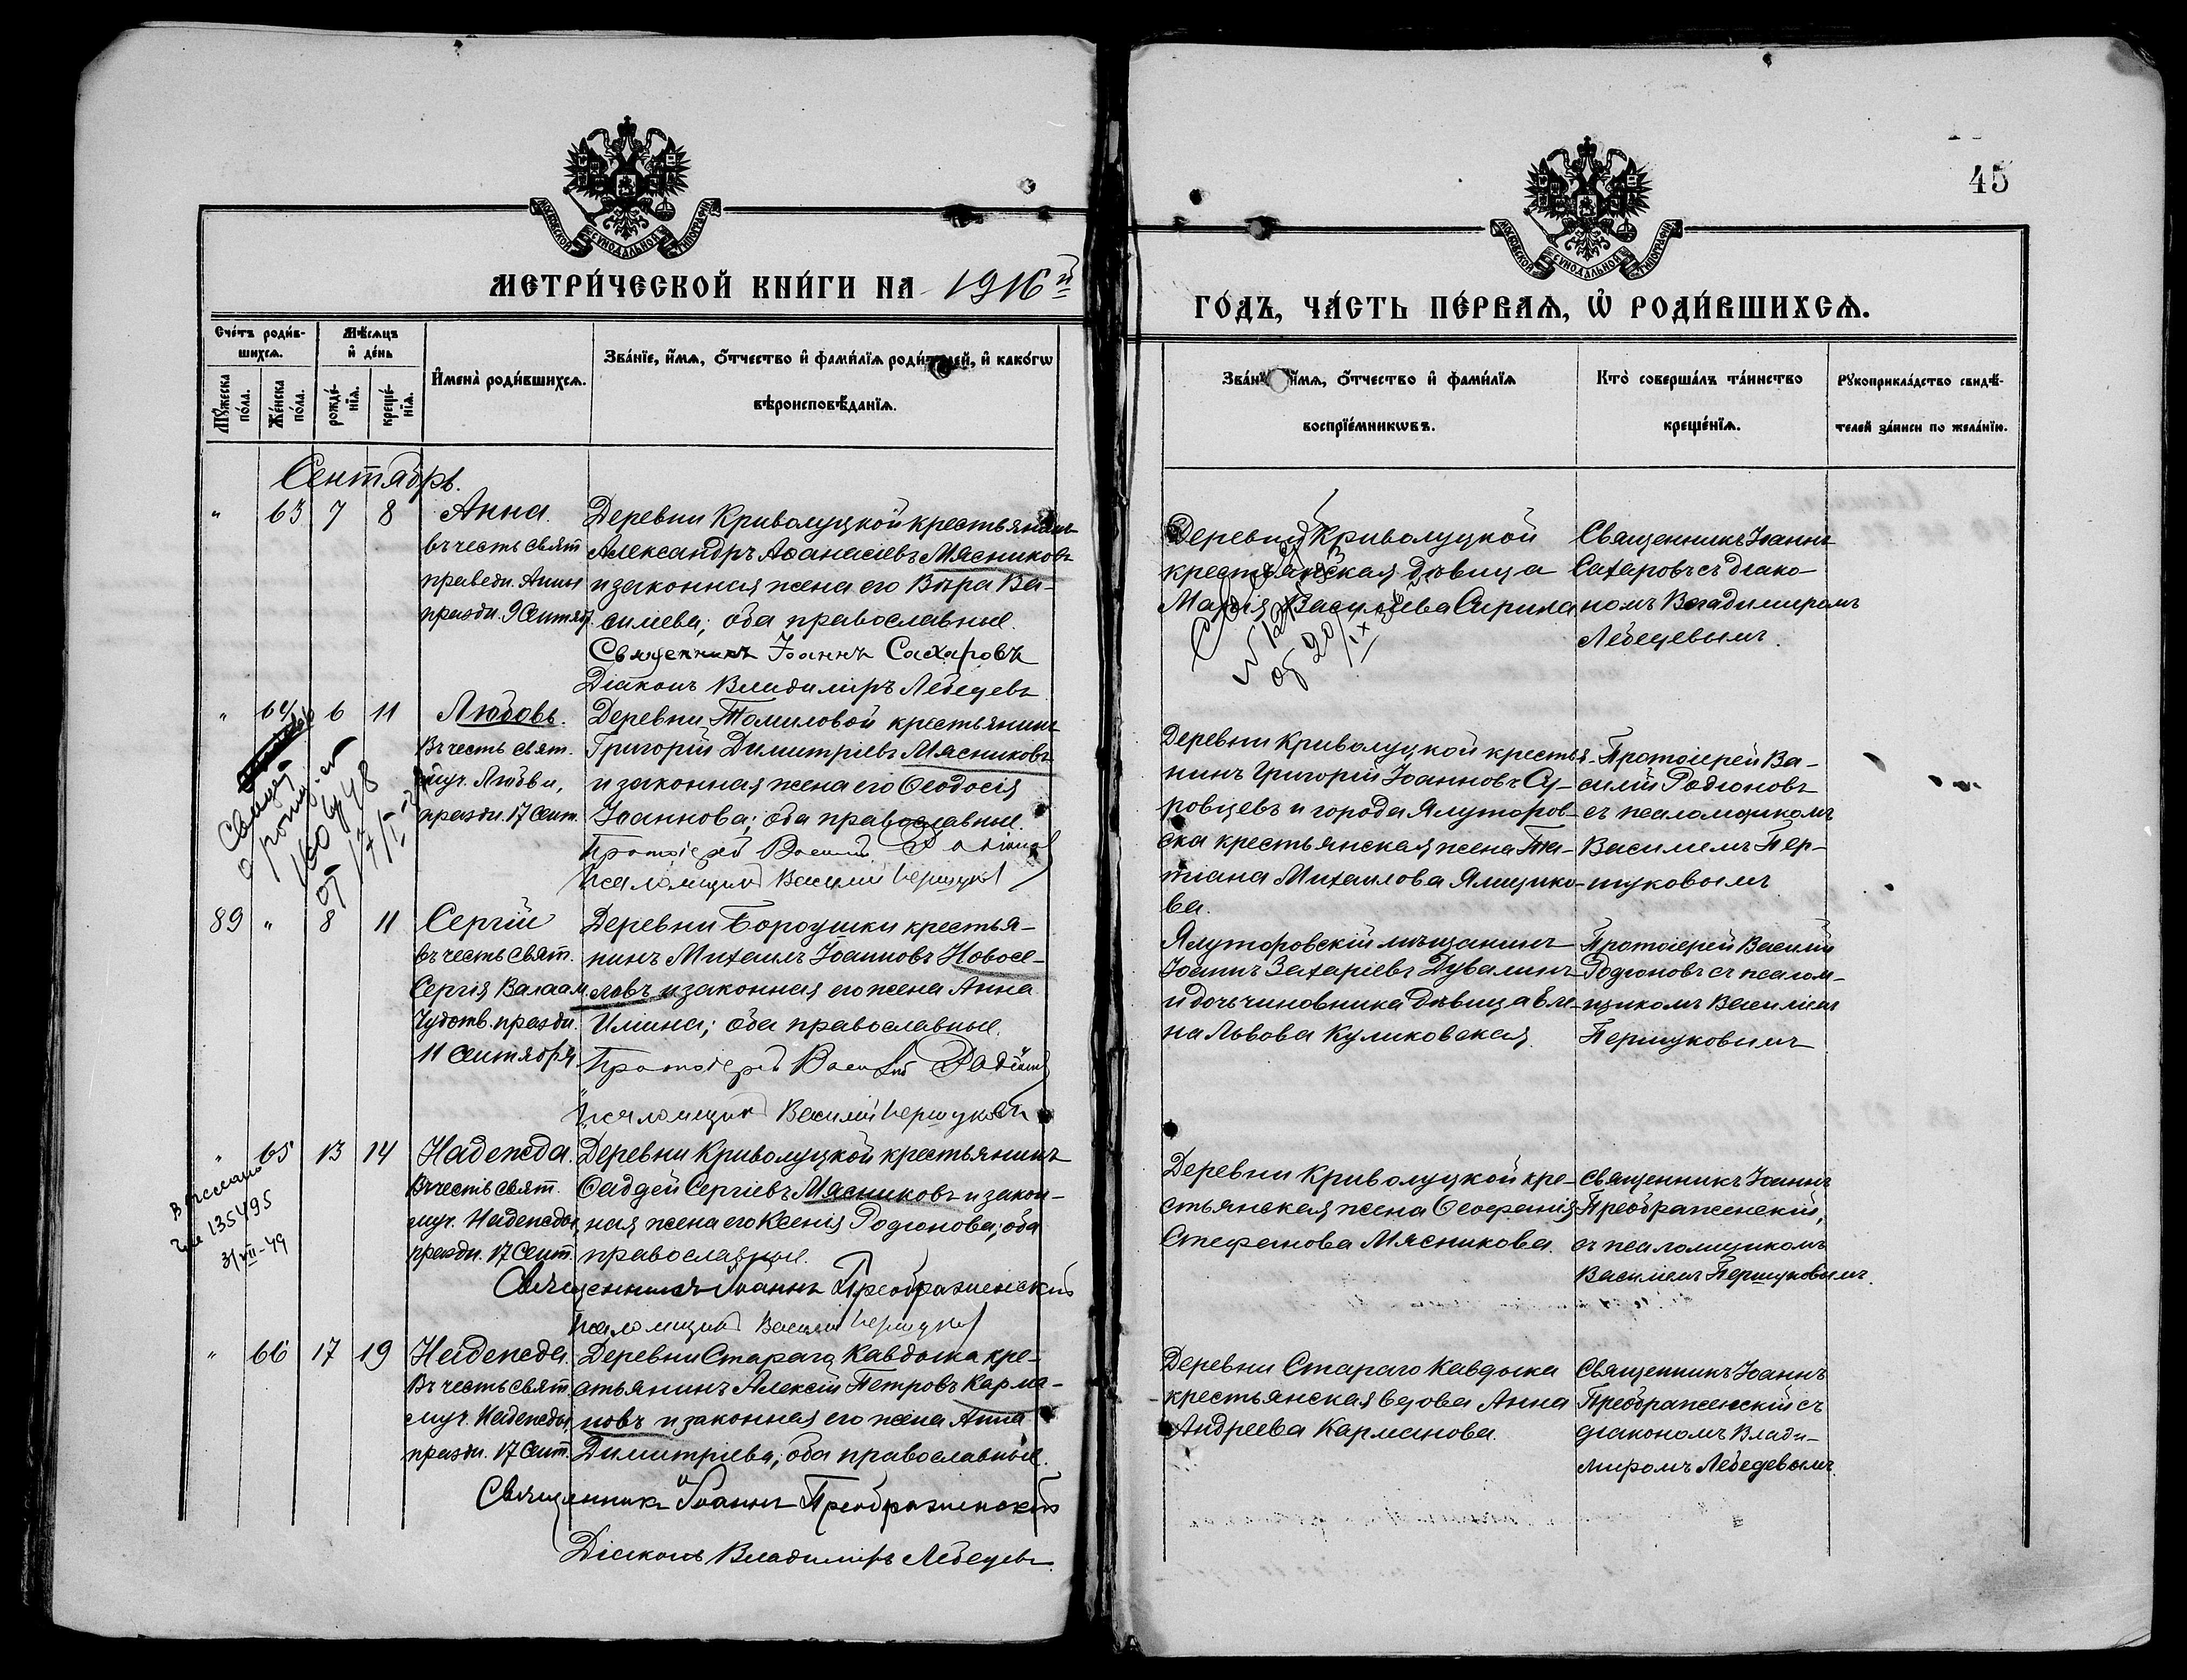 45
МОСКОВСКОЙ СѴНОДАЛЬНОЙ ТИПОГРАФІИ
МОСКОВСКОЙ СѴНОДАЛЬНОЙ ТИПОГРАФІИ
МЕТРИ́ЧЕСКОЙ КНИ́ГИ НА 1916й
ГО́ДЪ, ЧА́СТЬ ПЕ́РВАѦ, Ѡ҆ РОДИ́ВШИХСѦ.
Сче́тъ роди́в-
шихсѧ.
Мꙋ́жеска по́ла.
Же́нска по́ла.
Мѣ́сѧцъ
и҆ де́нь
рожде́-
нїѧ.
креще́-
нїѧ.
И҆мена̀ роди́вшихсѧ.
Зва́нїе, и҆́мѧ, ѻ҆́тчество и҆ фами́лїѧ роди́телей, и҆ како́гѡ
вѣроисповѣ́данїѧ.
Зва́нїе, и҆́мѧ, ѻ҆́тчество и҆ фами́лїѧ
воспрїе́мникѡвъ.
Кто̀ соверша́лъ та́инство
креще́нїѧ.
Рꙋкоприкла́дство свидѣ́-
телей за́писи по жела́нїю.
Сентябрь.
" 63 7 8 Анна.
въ честь свят
праведн. Анны
праздн. 9 Сентяб.
Деревни Криволуцкой крестьянинъ
Александръ Аѳанасіевъ Мясниковъ
и законная жена его Вѣра Ва-
силіева; оба православные.
Священникъ Іоаннъ Сахаровъ
Діаконъ Владиміръ Лебедевъ
Деревни Криволуцкой
крестьянская дѣвица
Марія Василіева Сирина
Священникъ Іоаннъ
Сахаровъ съ діако-
номъ Владиміромъ
Лебедевымъ.
от 20/IX
" 64 6 11 Любовь.
Въ честь свят.
муч. Любви,
праздн. 17 Сент.
Деревни Томиловой крестьянинъ
Григорій Димитріевъ Мясниковъ
и законная жена его Ѳеодосія
Іоаннова; оба православные.
Протоіерей Василій Родіоновъ
Псаломщикъ Василій Першуковъ
Деревни Криволуцкой крестья-
нинъ Григорій Іоанновъ Су-
ровцевъ и города Ялуторов-
ска крестьянская жена Та-
тіана Михаилова Ямщико-
ва.
Протоіерей Ва-
силій Родіоновъ
съ псаломщикомъ
Василіемъ Пер-
шуковымъ
от 17/I
89 " 8 11 Сергій
въ честь свят.
Сергія Валаам.
Чудотв. праздн.
11 Сентября
Деревни Бороушки крестья-
нинъ Михаилъ Іоанновъ Новосе-
ловъ и законная его жена Анна
Илиина; оба православные.
Протоіерей Василій Родіоновъ
Псаломщикъ Василій Першуковъ
Ялуторовскій мѣщанинъ
Іоаннъ Захаріевъ Дувалинъ
и дочь чиновника дѣвица Еле-
на Львова Куликовская.
Протоіерей Василій
Родіоновъ съ псалом-
щикомъ Василіемъ
Першуковымъ
" 65 13 14 Надежда.
Въ честь свят.
муч. Надежды,
праздн. 17 Сент.
Деревни Криволуцкой крестьянинъ
Ѳаддей Сергіевъ Мясниковъ и закон-
ная жена его Ксенія Родіонова; оба
православные.
Священникъ Іоаннъ Преображенскій
Псаломщикъ Василій Першуковъ
Деревни Криволуцкой кре-
стьянская жена Ѳеофанія
Стефанова Мясникова.
Священникъ Іоаннъ
Преображенскій,
съ псаломщикомъ
Василіемъ Першуковымъ.
135495
31/VII-49
" 66 17 19 Надежда.
Въ честь свят.
муч. Надежды,
праздн. 17 Сент.
Деревни Стараго Кавдыка кре-
стьянинъ Алексій Петровъ Карма-
новъ и законная его жена Анна
Димитріева; оба православные.
Священникъ Іоаннъ Преображенскій
Діаконъ Владиміръ Лебедевъ
Деревни Стараго Кавдыка
крестьянская вдова Анна
Андреева Карманова.
Священникъ Іоаннъ
Преображенскій съ
діакономъ Влади-
міромъ Лебедевымъ.